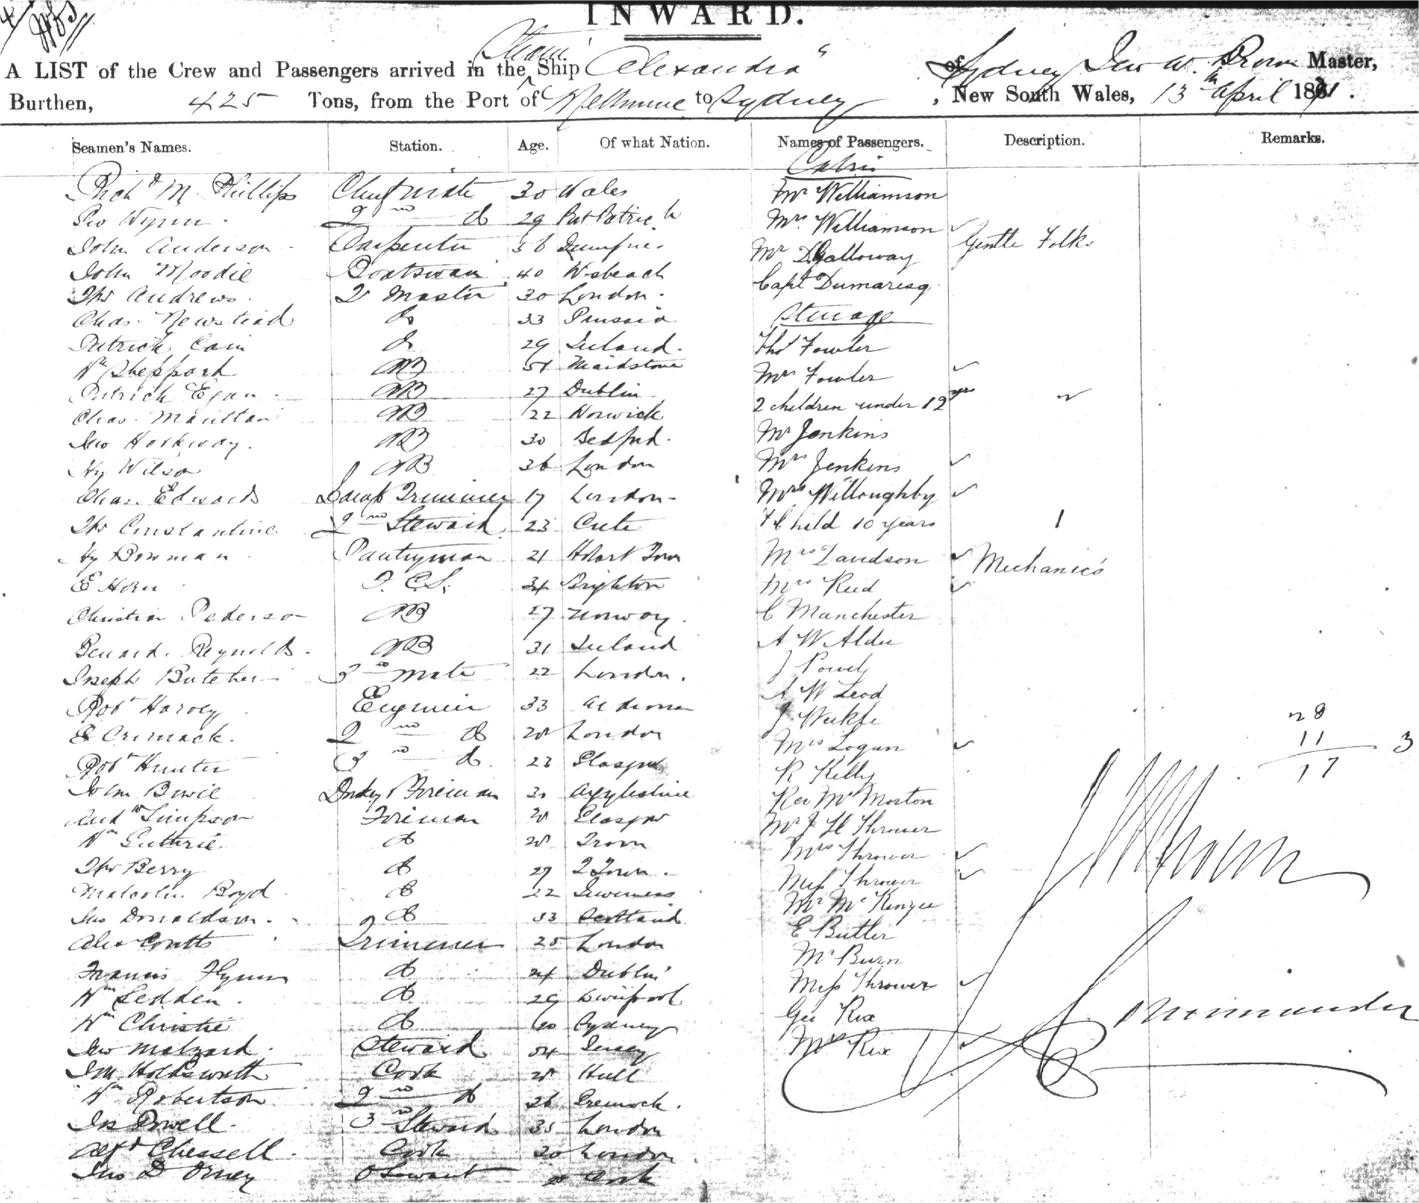 INWARD.
A LIST of the Crew and Passengers arrived in the Steam Ship "Alexandra" of Sydney W. Brown Master,
Burthen, 425 Tons, from the Port of Melbourne to Sydney, New South Wales, 13th April 1871.
Seamen's Names. Station. Age. Of what Nation. Names of Passengers. Description. Remarks.
Cabin
Richd M. Phillips Chief Mate 30 Wales Mr Williamson
Geo Wynn 2nd do 29 Port Patrick Mrs Williamson
John Anderson Carpenter 36 Dumfries Mr D Galloway Gentle Folks
John Moodie Boatswain 40 Wisbeach Capt Dumaresq
Thos Andrews Qr Master 30 London
Chas. Newstead do 33 Prussia Steerage
Patrick Cain do 29 Ireland Thos Fowler
Wm Sheppard AB 51 Maidstone Mrs Fowler
Patrick Egan AB 27 Dublin 2 children under 12 yrs
Chas. Moulton AB 22 Norwich Mr Jenkins
AB 30 Bedford Mrs Jenkins
Hy Wilson AB 36 London Mrs Willoughby
Chas Edwards Trimmer 17 London 1 Child 10 years 1
Thos Constantine 2nd Steward 23 Crete
Hy Bowman Pantryman 21 Hobart Town Mrs Davidson Mechanics
E Horn 34 Brighton Mrs Reid
Christian Pederson AB 27 Norway C Manchester
Bernard Reynolds AB 31 Ireland A W Alder
Joseph Butcher 3rd mate 22 London
Robt Harvey Engineer 33 A McLeod
E Crimack 2nd do London J
Robt Hunter 3rd do 23 Glasgow Mrs Logan 28
John Bowie Donkey Fireman Argyleshire R Kelly 11 3
Andw Simpson Fireman Glasgow Rev Mr Morton 17
Wm Guthrie do Troon Mr J H Thrower
Thos Berry do 27 Mrs Thrower
Malcolm Boyd do 22 Inverness Miss Thrower
Jas Donaldson do 33 Scotland Mr McKenzie
Alex Coutts Trimmer 25 London E Butler
Francis Flynn do 24 Dublin Mr Burn
Wm Seddon do 29 Liverpool Miss Thrower
Wm Christie do Sydney Geo Rix Commander
Malzard Steward 54 Jersey Mrs Rix
Holdsworth Cook Hull
Wm Robertson 2nd do 26 Greenock
Jas Powell 3rd Steward 35 London
Alfd Chessell Cook 30 London
Cork